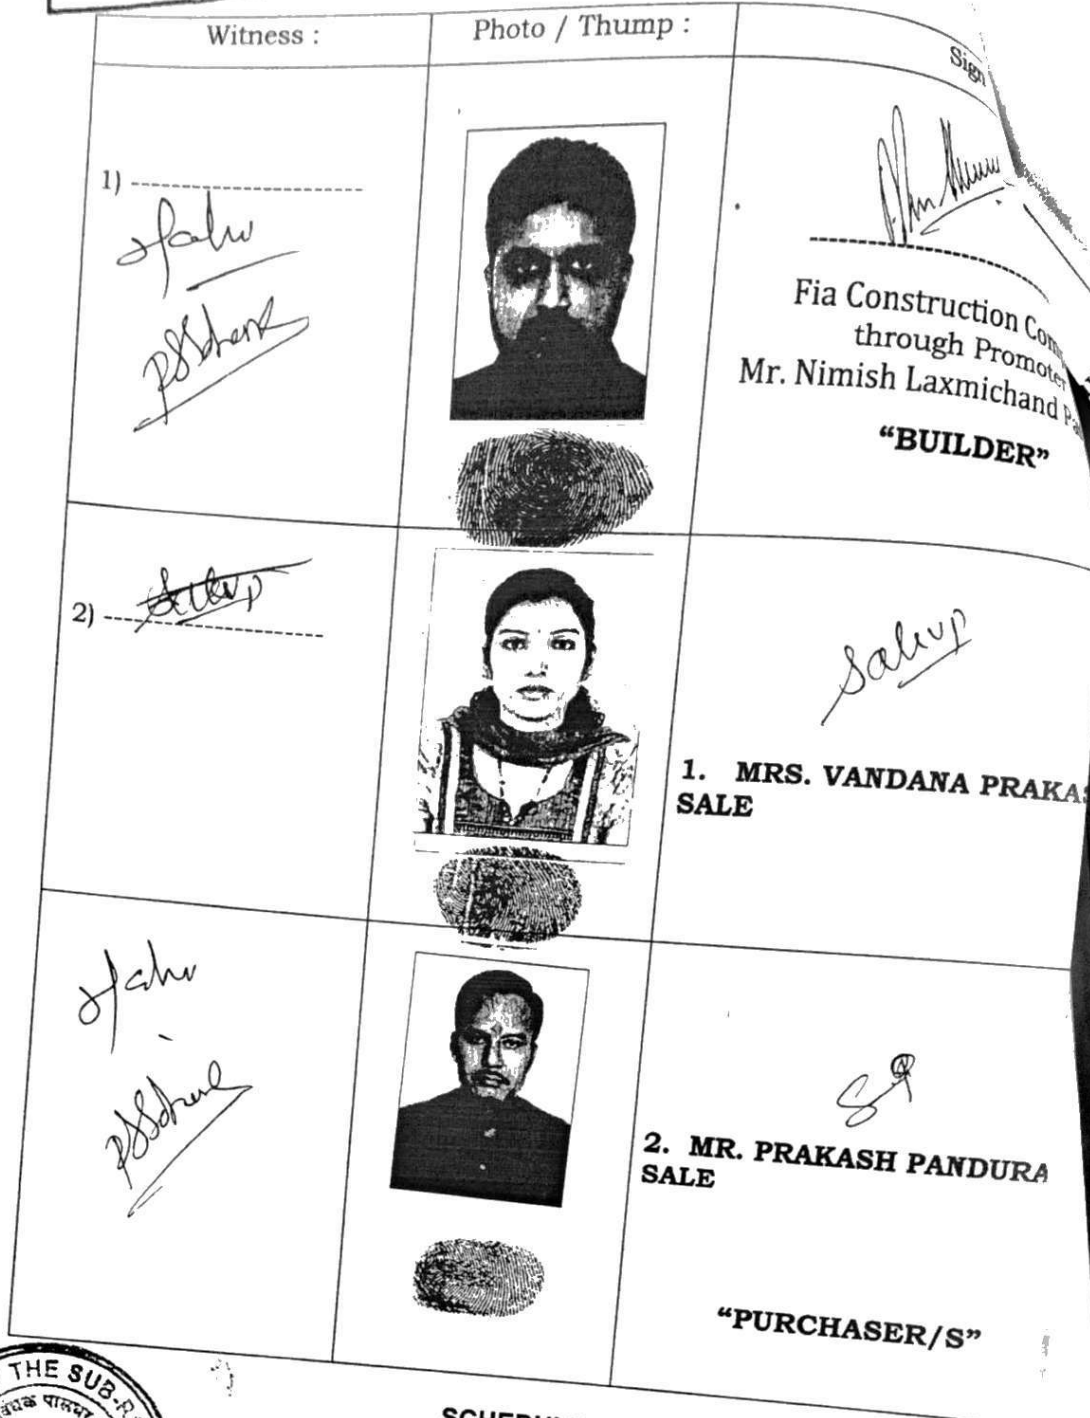 Witness :
Photo / Thump :
Sign
1)
Fia Construction Com
through Promoter
Mr. Nimish Laxmichand Pa
“BUILDER”
2)
Salevp
1. MRS. VANDANA PRAKAS
SALE
2. MR. PRAKASH PANDURA
SALE
“PURCHASER/S”
THE SUB-R